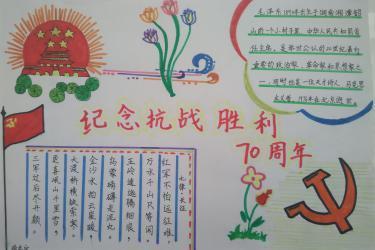 毛泽东1893年出生于湖南湘潭韶
山的一个小村子里,中华人民共和国首
任主席,是举世公认的二十世纪最
重要的政治家、革命家和思想家之
一,同时他是一位天才诗人、马克思
主义者,1976年在北京逝世。
纪念抗战胜利
70周年
七律·长征
红军不怕远征难,
万水千山只等闲。
五岭逶迤腾细浪,
乌蒙磅礴走泥丸。
金沙水拍云崖暖,
大渡桥横铁索寒。
更喜岷山千里雪,
三军过后尽开颜。